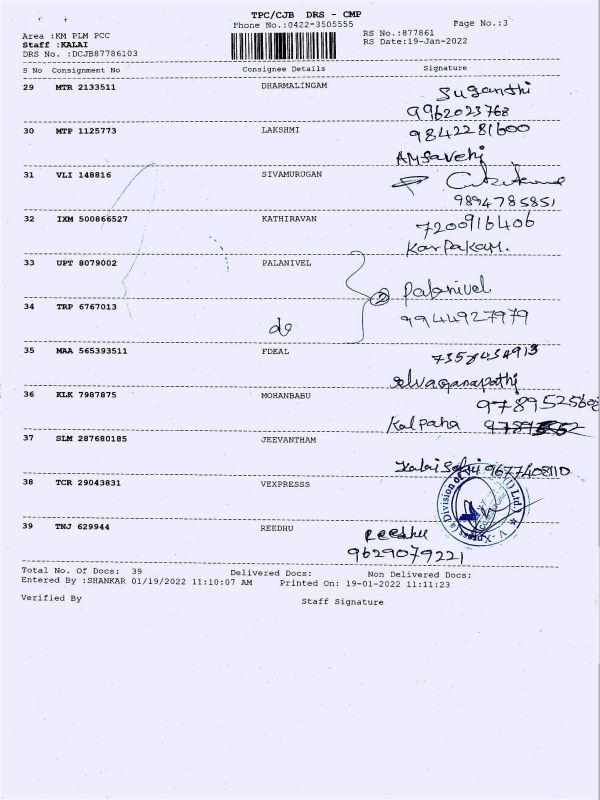 TPC/CJB DRS - CMP
Phone No.:0422-3505555
Page No.:3
Area :KM PLM PCC
Staff :KALAI
DRS No. :DCJB87786103
RS No.:877861
RS Date:19-Jan-2022
S No Consignment No Consignee Details Signature
29 MTR 2133511 DHARMALINGAM
Suganthi
9962023768
30 MTP 1125773 LAKSHMI
9842281600
Amsaveni
31 VLI 148816 SIVAMURUGAN
9894785851
32 IXM 500866527 KATHIRAVAN
7200916406
Karpakam.
33 UPT 8079002 PALANIVEL
② Palanivel
34 TRP 6767013
do
9944927979
35 MAA 565393511 FDEAL
Selvaganapathi
36 KLK 7987875 MOHANBABU
Kalpana
37 SLM 287680185 JEEVANTHAM
Kalai Selvi 9677408110
38 TCR 29043831 VEXPRESSS
(A Division of V (I) Ltd.) ★ V-Xpress
39 TNJ 629944 REEDHU
Reedhu
9629079221
Total No. Of Docs: 39 Delivered Docs: Non Delivered Docs:
Entered By :SHANKAR 01/19/2022 11:10:07 AM Printed On: 19-01-2022 11:11:23
Verified By Staff Signature